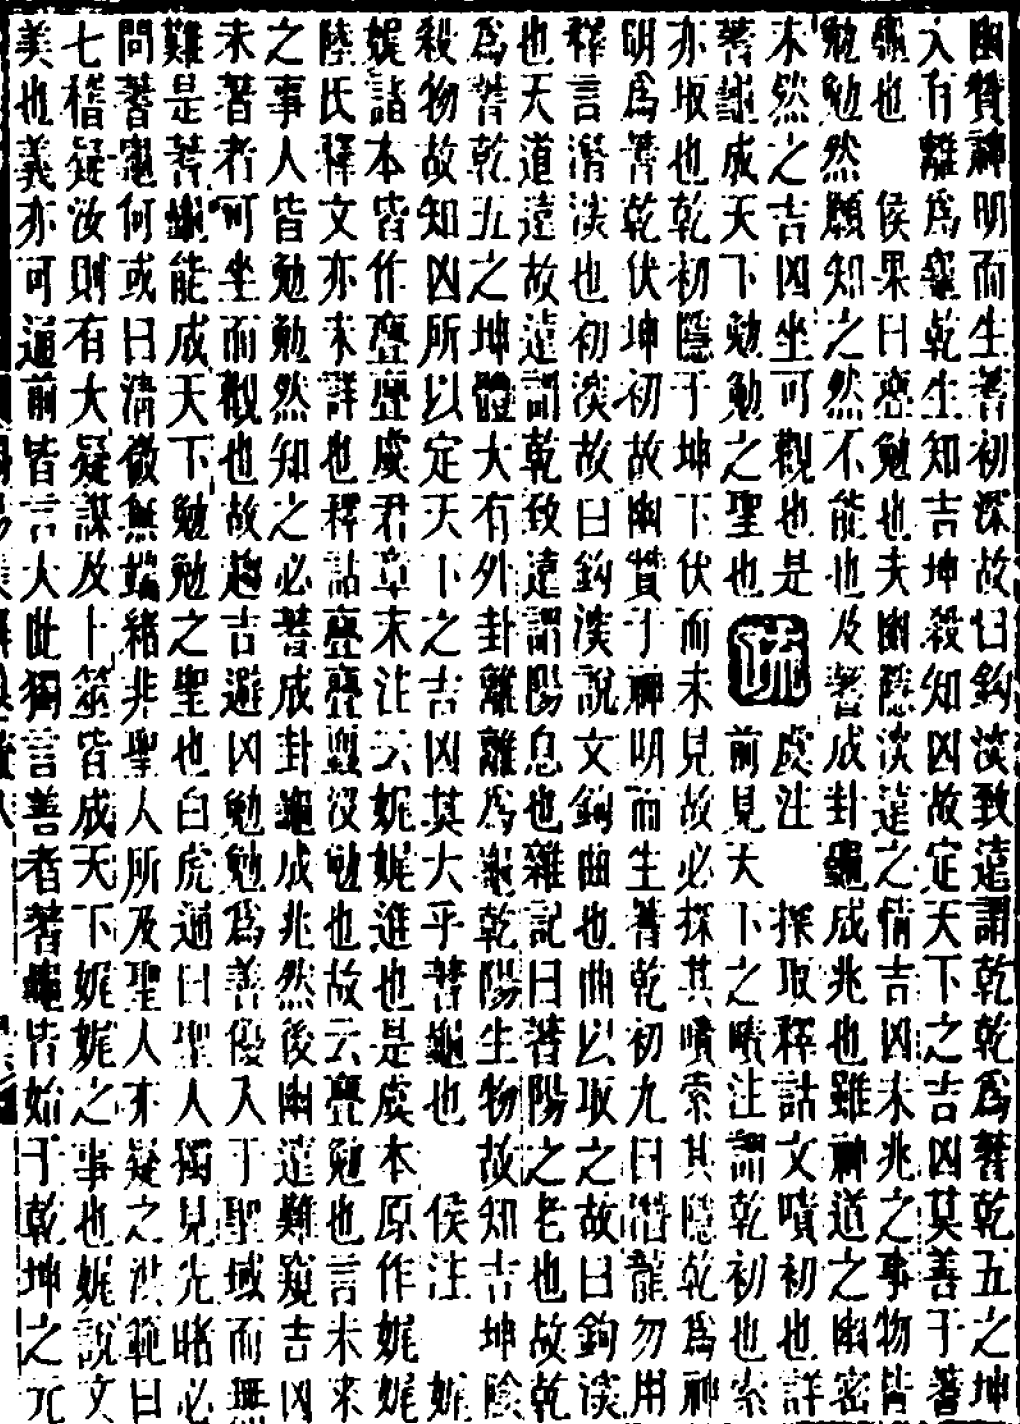 幽贊神明而生蓍初深故曰鈎深致遠謂乾乾為蓍乾五之坤
入有離為龜乾生知吉坤殺知凶故定天下之吉凶莫善于蓍
龜也 侯果曰亹勉也夫幽隱深遠之情吉凶未兆之事物皆
勉勉然願知之然不能也及蓍成卦龜成兆也雖神道之幽密
未然之吉凶坐可觀也是 疏 虞注 探取釋詁文嘖初也詳
蓍龜成天下勉勉之聖也 前見大下之嘖注謂乾初也索
亦取也乾初隱于坤下伏而未見故必探其嘖索其隱乾為神
明為蓍乾伏坤初故幽贊于神明而生蓍乾初九曰潛龍勿用
釋言潛深也初深故曰鈎深說文鈎曲也曲以取之故曰鈎深
也天道遠故遠謂乾致遠謂陽息也雜記曰蓍陽之老也故乾
為蓍乾五之坤體大有外卦離離為龜乾陽生物故知吉坤陰
殺物故知凶所以定天下之吉凶莫大乎蓍龜也 侯注 娓
娓諸本皆作亹亹虞君章末注云娓娓進也是虞本原作娓娓
陸氏釋文亦未詳也釋詁亹亹蠠没勉也故云亹勉也言未來
之事人皆勉勉然知之必蓍成卦龜成兆然後幽遠難窺吉凶
未著者可坐而觀也故趨吉避凶勉勉為善優入于聖域而無
難是蓍龜能成天下勉勉之聖也白虎通曰聖人獨見先睹必
問蓍龜何或曰清微無端緒非聖人所及聖人亦疑之洪範曰
七稽疑汝則有大疑謀及卜筮皆成天下娓娓之事也娓說文
美也義亦可通前皆言人此獨言善者蓍龜皆始于乾坤之元